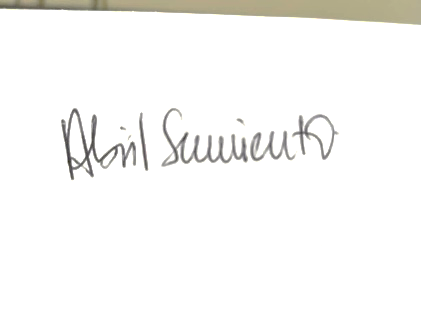 Abril Sarmiento